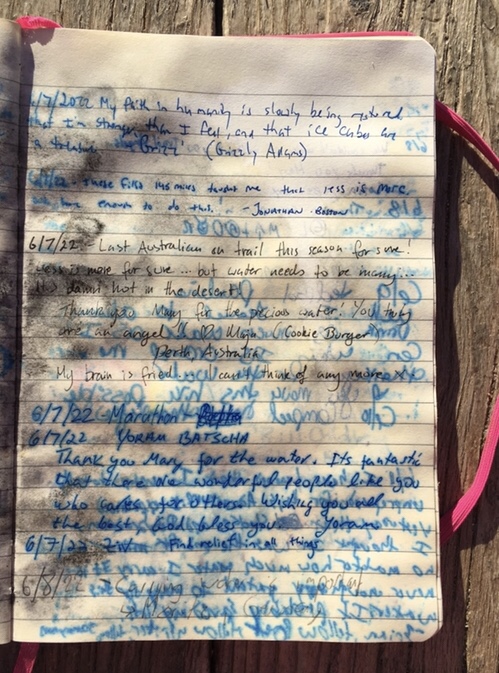 6/7/2022 My faith in humanity is slowly being restored
that I'm stronger than I feel, and that ice cubes are
a treasure - Grizz (Grizzly Adams)
- These first 145 miles taught me that less is more,
enough to do this! - JONATHAN - BOSTON
6/7/22 - Last Australian on trail this season for sure!
Less is more for sure ... but water needs to be many...
It's damn hot in the desert!
Thank you Mary for the precious water! You truly
are an angel! ♡ Maja (Cookie Burger
Perth Australia
My brain is fried... can't think of any more x x
6/7/22 - Marathon
6/7/22 YORAM BATSCHA
Thank you Mary for the water. Its fantastic
that there are wonderful people like you
who cares for others. Wishing you all
the best. God bless you Yoram
6/7/22 ZW Find relief in all things
6/8/22 - Carrying